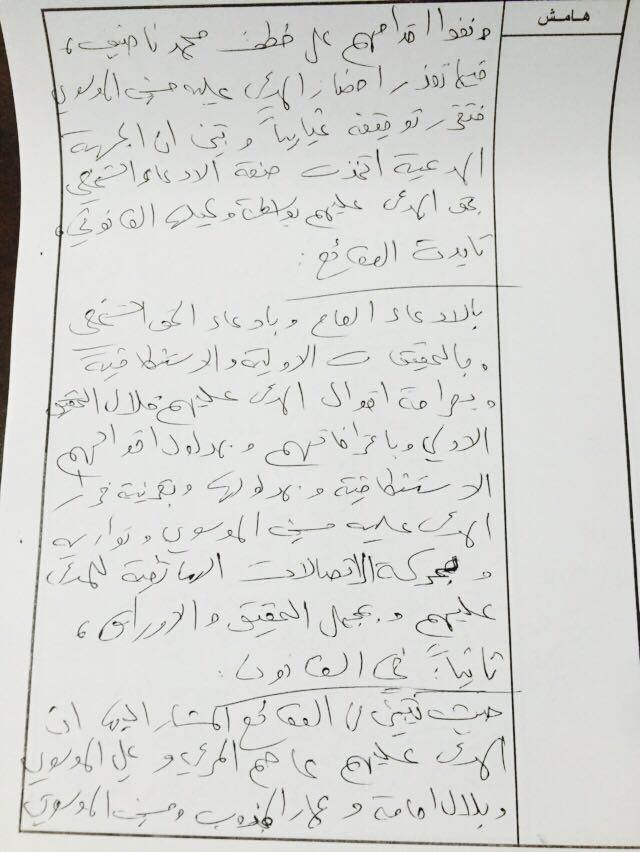 هامش
ونفوا اقدامهم على خطف محمد ناصيف،
فيما تعذر احضار المدعى عليه حسين الموسوي
فتقرر توقيفه غيابياً وتبين ان الجهة
المدعية اتخذت صفة الادعاء الشخصي
بحق المدعى عليهم بواسطة وكيلها القانوني،
تأيدت الوقائع:
بالادعاء العام وبادعاء الحق الشخصي
وبالتحقيقات الاولية والاستنطاقية
وبصراحة اقوال المدعى عليهم خلال التحقيق
الاولي وباعترافاتهم وبمدلول اقوالهم
الاستنطاقية وبمدلولها وبقرينة فرار
المدعى عليه حسين الموسوي وتواريه
وبحركة الاتصالات الهاتفية للمدعى
عليهم وبمجمل التحقيق والاوراق،
ثانياً: في القانون:
حيث تبين من الوقائع المشار اليها ان
المدعى عليهم عاصم المرعي وعلي الموسوي
وبلال امامة وعمار المجذوب وحسين الموسوي